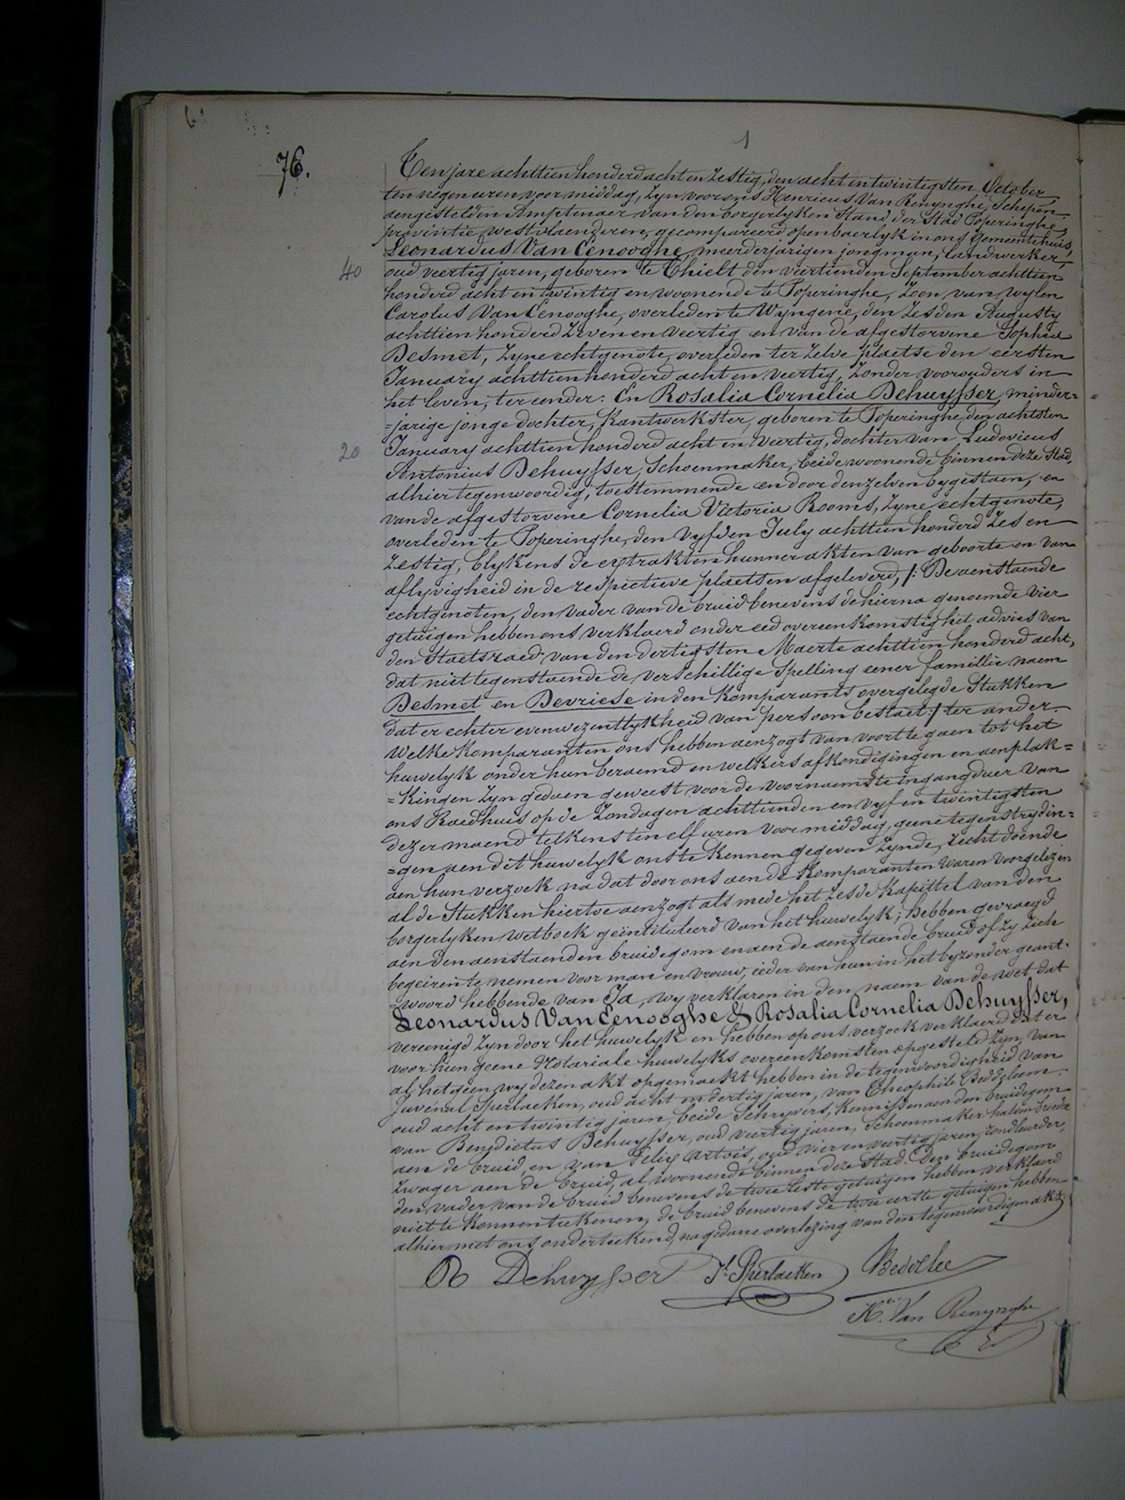 1
76.
Ten jare achttien honderd acht en zestig, den acht en twintigsten October
ten negen uren voor middag, zyn voor ons Henricus Van Renynghe, Schepen
aengestelden Amptenaer van den borgerlyken Stand, der Stad Poperinghe,
provintie westvlaenderen, gecompareerd openbaerlyk in ons gemeentehuis,
Leonardus Van Eenooghe, meerderjarigen jongman, landwerker,
40
oud veertig jaren, geboren te Thielt den veertienden September achttien
honderd acht en twintig en woonende te Poperinghe, zoon van wylen
Carolus Van Eenooghe, overleden te Wyngene, den zesden Augusty
achttien honderd zeven en veertig en van de afgestorvene Sophia
Desmet, zyne echtgenote, overleden ter zelve plaetse den eersten
January achttien honderd acht en veertig, zonder voorouders in
het leven, ter eender: En Rosalia Cornelia Dehuysser, minder=
=jarige jonge dochter, Kantwerkster, geboren te Poperinghe den achtsten
20
January achttien honderd acht en veertig, dochter van Ludovicus
Antonius Dehuysser, Schoenmaker, beide woonende binnen deze Stad,
alhier tegenwoordig, toestemmende en door denzelven bygestaen, en
van de afgestorvene Cornelia Victoria Rooms, zyne echtgenote,
overleden te Poperinghe, den vyfden July achttien honderd zes en
zestig, blykens de extrakten hunner akten van geboorte en van
aflyvigheid in de respictieve plaetsen afgeleverd, /: De aenstaende
echtgenoten, den vader van de bruid benevens de hierna genoemde vier
getuigen hebben ons verklaerd onder eed overeenkomstig het advies van
den Staetsraed van den dertigsten Maerte achttien honderd acht,
dat niettegenstaende de verschillige Spelling eener famillie naem
Desmet en Devriese in den Komparants overgelegde Stukken
dat er echter evenwezentlykheid van persoon bestaet :/ ter ander.
Welke Komparanten ons hebben aenzogt van voort te gaen tot het
huwelyk onder hun beraemd en welkers afkondigingen en aenplak=
=kingen zyn gedaen geweest voor de voornaemste ingangduer van
ons Raedhuis op de Zondagen achttienden en vyf en twintigsten
dezer maend telkens ten elf uren voor middag, geene tegenstrydin=
=gen aen dit huwelyk ons te kennen gegeven zynde, recht doende
aen hun verzoek na dat door ons aen de Komparanten waren voorgelezen
al de Stukken hiertoe aenzogt als mede het zesde Kapittel van den
borgerlyken wetboek geïntituleerd van het huwelyk; hebben gevraegd
aen den aenstaenden bruidegom en aen de aenstaende bruid of zy zich
begeiren te nemen voor man en vrouw, ieder van hun in het byzonder geant-
=woord hebbende van Ja, wy verklaren in den naem van de wet dat
Leonardus Van Eenooghe & Rosalia Cornelia Dehuysser,
vereenigd zyn door het huwelyk en hebben op ons verzoek verklaerd dat er
voor hun geene Notariale huwelyks overeenkomsten opgesteld zyn, van
al hetgeen wy dezen akt opgemaekt hebben in de tegenwoordigheid van
Juvenal Sperlaeken, oud acht en dertig jaren, van Theophile Bedelee
oud acht en twintig jaren, beide Schryvers, Kennissen aen den bruidegom
van Benedictus Dehuysser, oud veertig jaren, Schoenmaker halven broeder
aen de bruid, en van Felix Artois, oud vier en veertig jaren,
Zwager aen de bruid, al woonende binnen deze Stad. Den bruidegom
den vader van de bruid benevens de twee leste getuigen hebben verklaerd
niet te konnen teekenen, de bruid benevens de twee eerste getuigen hebben
alhier met ons onderteekend, na gedane overlezing van den tegenwoordigen akt.
Dehuysser Jl Sperlaeken Bedelee
Hri. Van Renynghe